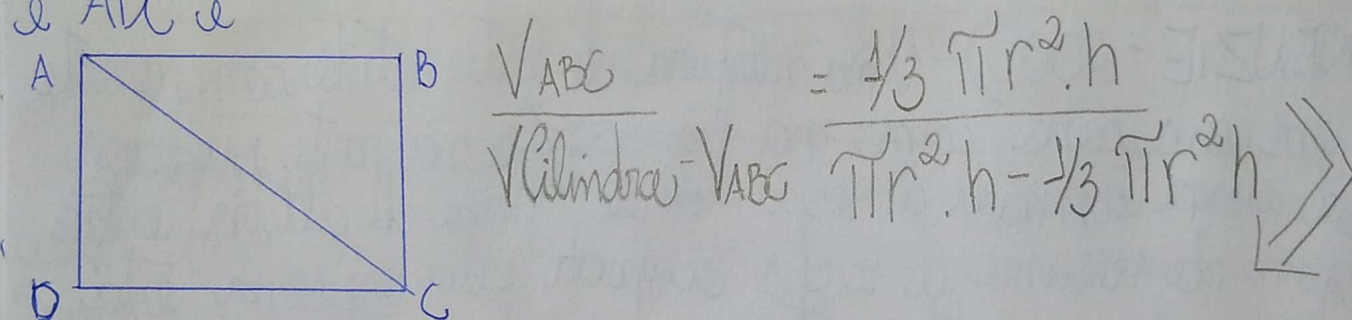 e ADC e
A
B
V ABC / VCilindro - VABC = 1/3 πr². h / πr². h - 1/3 πr² h
D
C